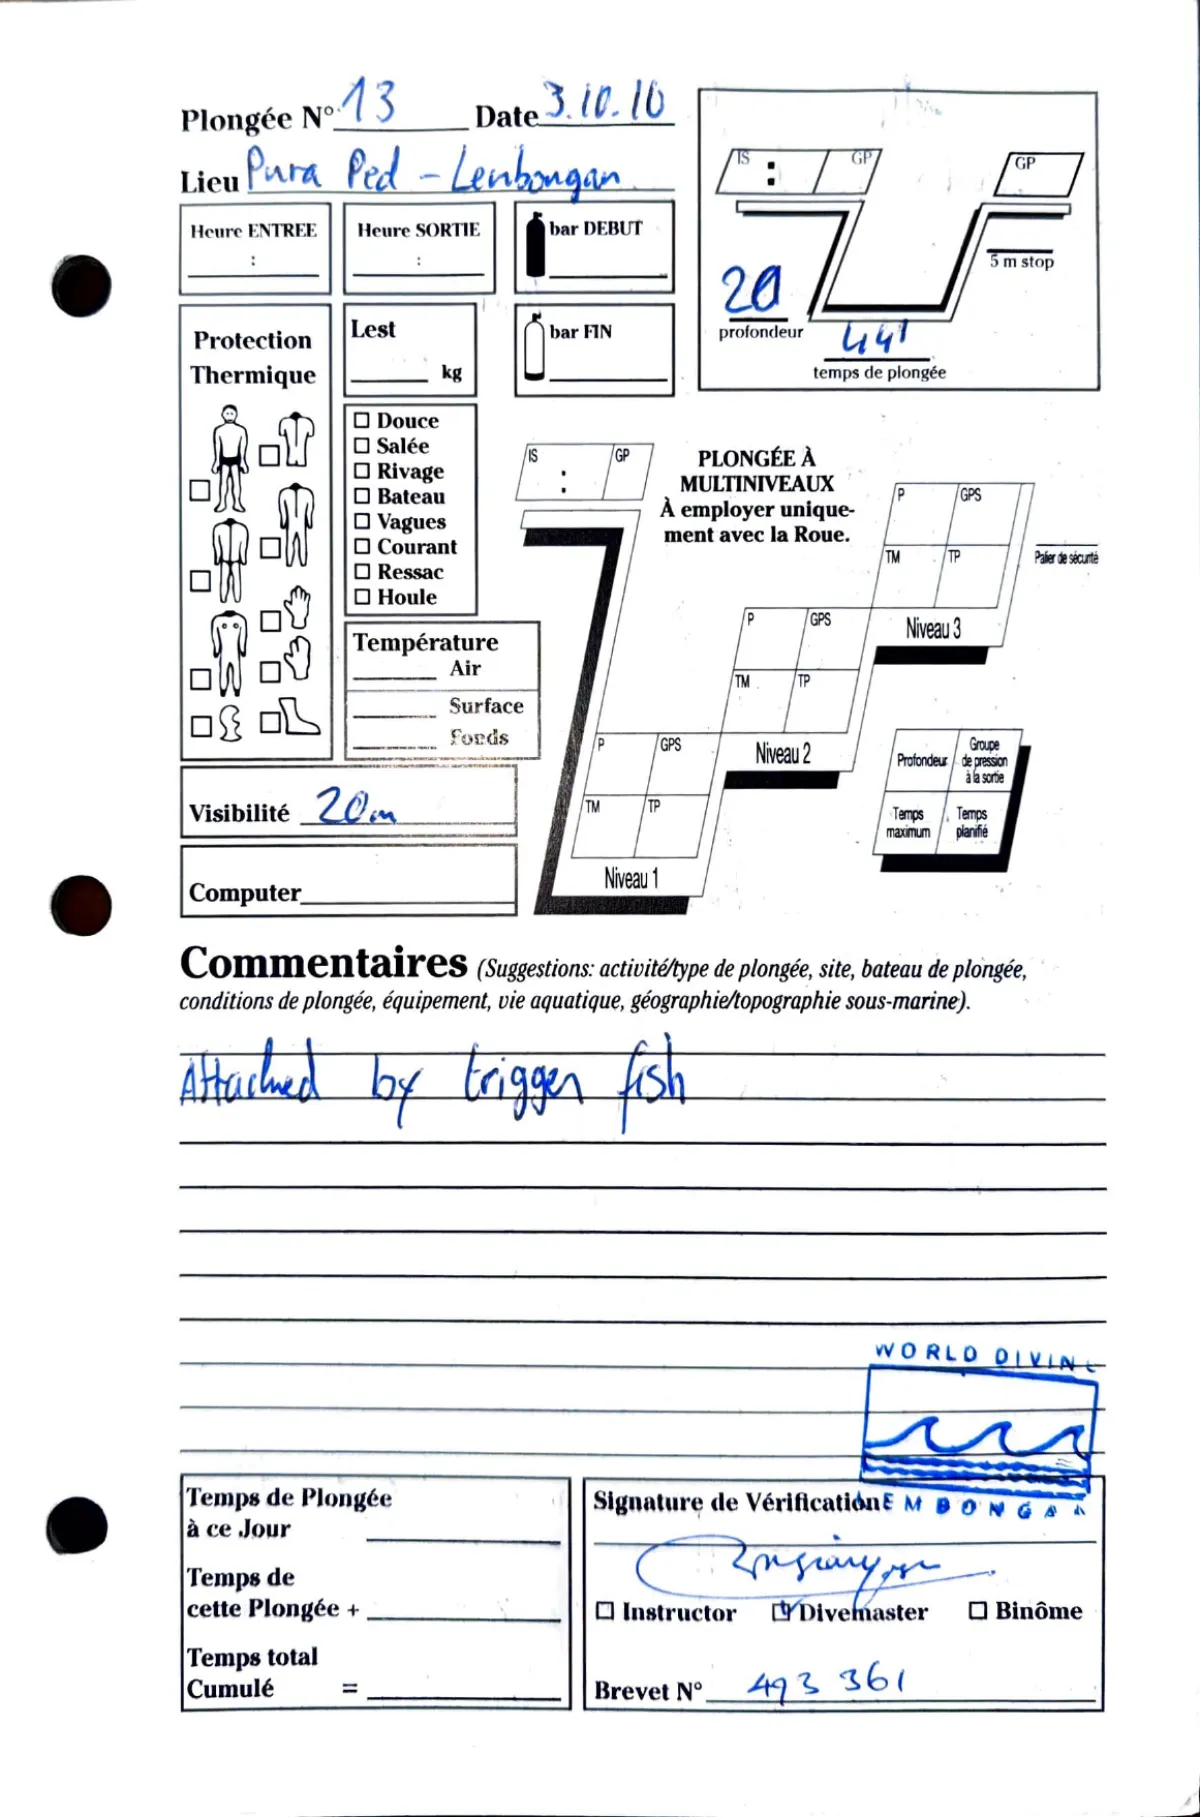 Plongée N° 13 Date 3.10.10
Lieu Pura Ped - Lenbongan
IS : GP
GP
Heure ENTREE
:
Heure SORTIE
:
bar DEBUT
5 m stop
20
profondeur
44'
temps de plongée
Protection
Thermique
Lest
kg
bar FIN
Douce
Salée
Rivage
Bateau
Vagues
Courant
Ressac
Houle
IS : GP
PLONGÉE À
MULTINIVEAUX
À employer unique-
ment avec la Roue.
P GPS
TM TP
Palier de sécurité
Niveau 3
P GPS
TM TP
Niveau 2
P GPS
TM TP
Niveau 1
Température
Air
Surface
Fonds
Profondeur
Groupe
de pression
à la sortie
Temps
maximum
Temps
planifié
Visibilité 20m
Computer
Commentaires (Suggestions: activité/type de plongée, site, bateau de plongée,
conditions de plongée, équipement, vie aquatique, géographie/topographie sous-marine).
Attached by trigger fish
WORLD DIVING
LEMBONGAN
Temps de Plongée
à ce Jour
Temps de
cette Plongée +
Temps total
Cumulé =
Signature de Vérification
Instructor Divemaster Binôme
Brevet N° 493 361